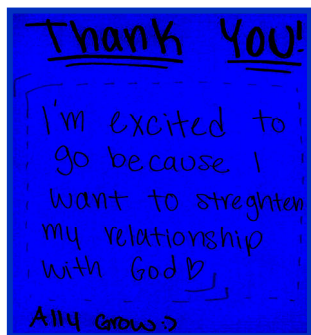 Thank You!
I'm excited to
go because I
want to streghten
my relationship
with God♡
Ally Grow :)